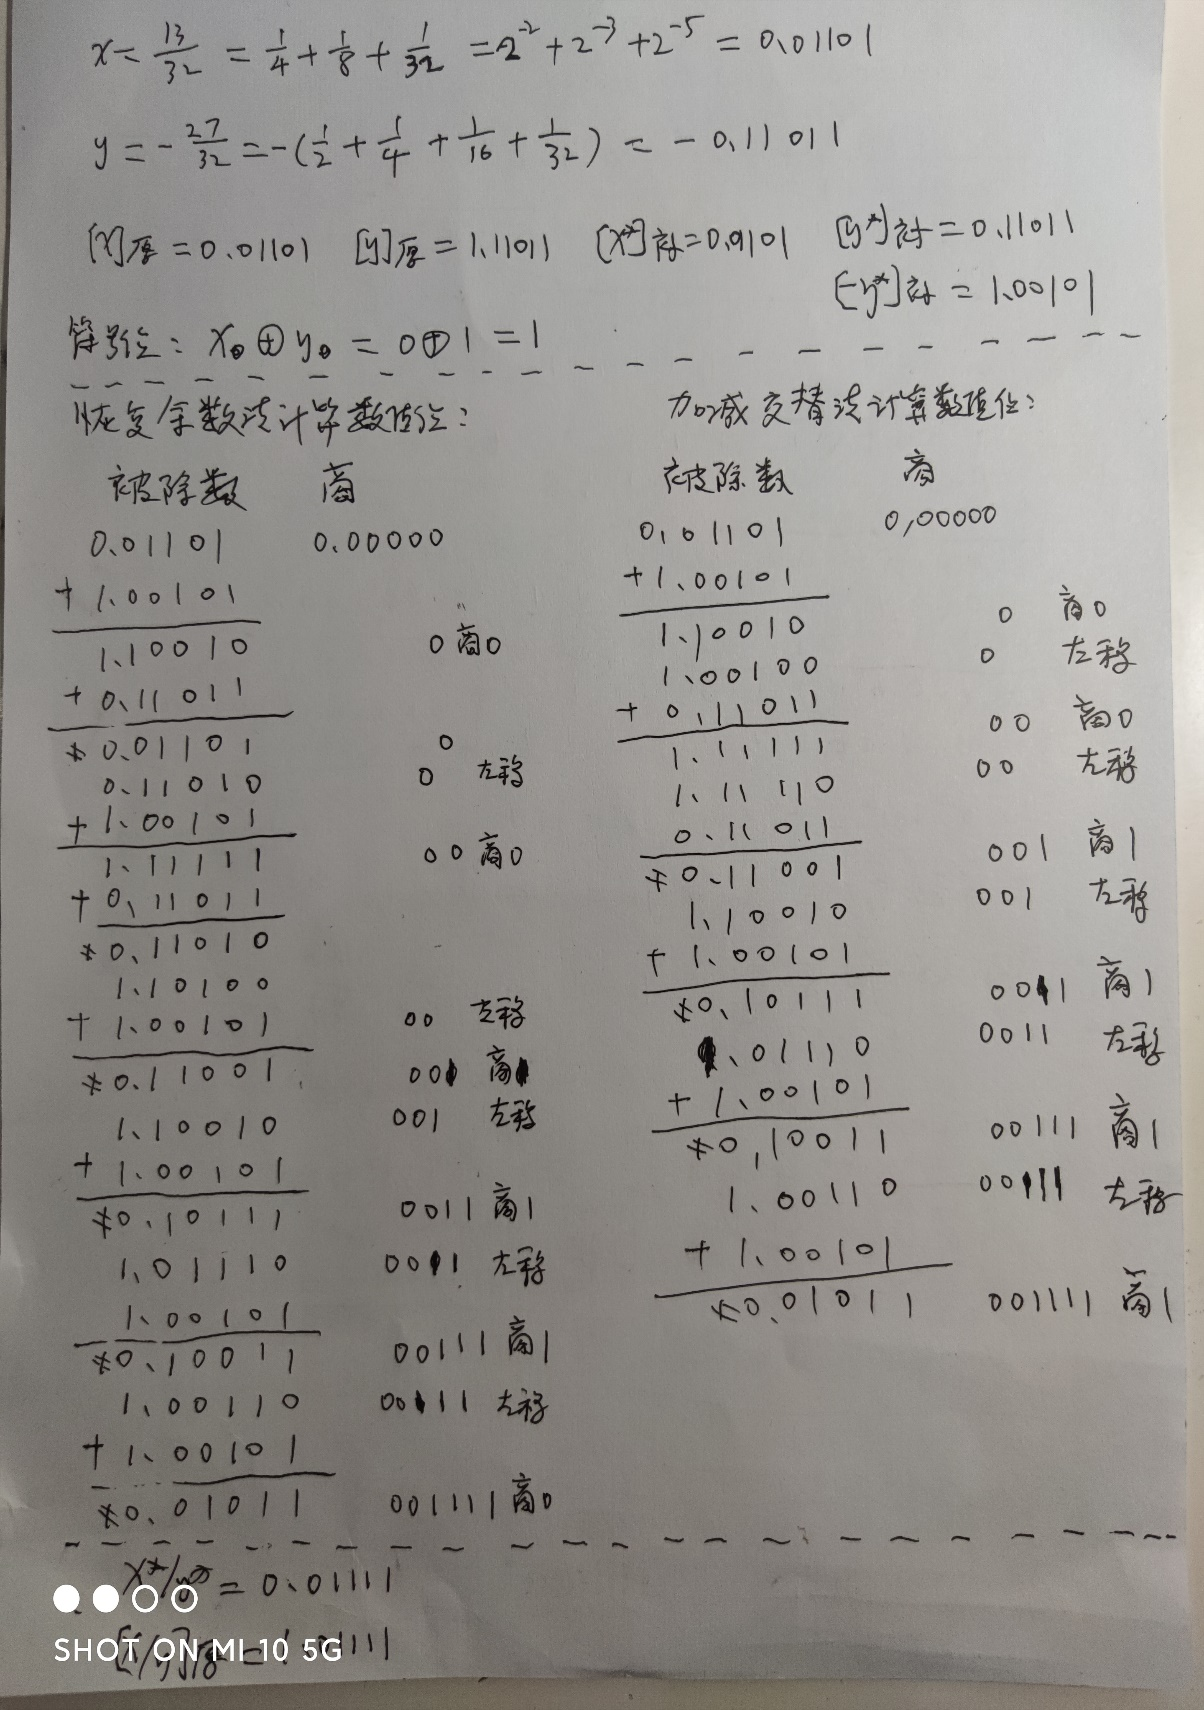 x = 13/32 = 1/4 + 1/8 + 1/32 = 2^-2 + 2^-3 + 2^-5 = 0.01101
y = -27/32 = -(1/2 + 1/4 + 1/16 + 1/32) = -0.11011
[x]原 = 0.01101 [y]原 = 1.11011 [x*]补 = 0.01101 [y*]补 = 0.11011
[-y*]补 = 1.00101
符号位: x0 ⊕ y0 = 0 ⊕ 1 = 1
恢复余数法计算数值位:
被除数 商
0.01101 0.00000
+ 1.00101
1.10010 0 商0
+ 0.11011
*0.01101 0
0.11010 0 左移
+ 1.00101
1.11111 00 商0
+ 0.11011
*0.11010
1.10100
+ 1.00101 00 左移
*0.11001 001 商1
1.10010 001 左移
+ 1.00101
*0.10111 0011 商1
1.01110 0011 左移
1.00101
*0.10011 00111 商1
1.00110 00111 左移
+ 1.00101
*0.01011 001111 商0
加减交替法计算数值位:
被除数 商
0.01101 0.00000
+ 1.00101
1.10010 0 商0
1.00100 0 左移
+ 0.11011 00 商0
1.11111
1.11110 00 左移
0.11011
*0.11001 001 商1
1.10010 001 左移
+ 1.00101
*0.10111 0011 商1
1.01110 0011 左移
+ 1.00101
*0.10011 00111 商1
1.00110 00111 左移
+ 1.00101
*0.01011 001111 商1
x*/y* = 0.01111
[x/y]原 = 1.01111
SHOT ON MI 10 5G